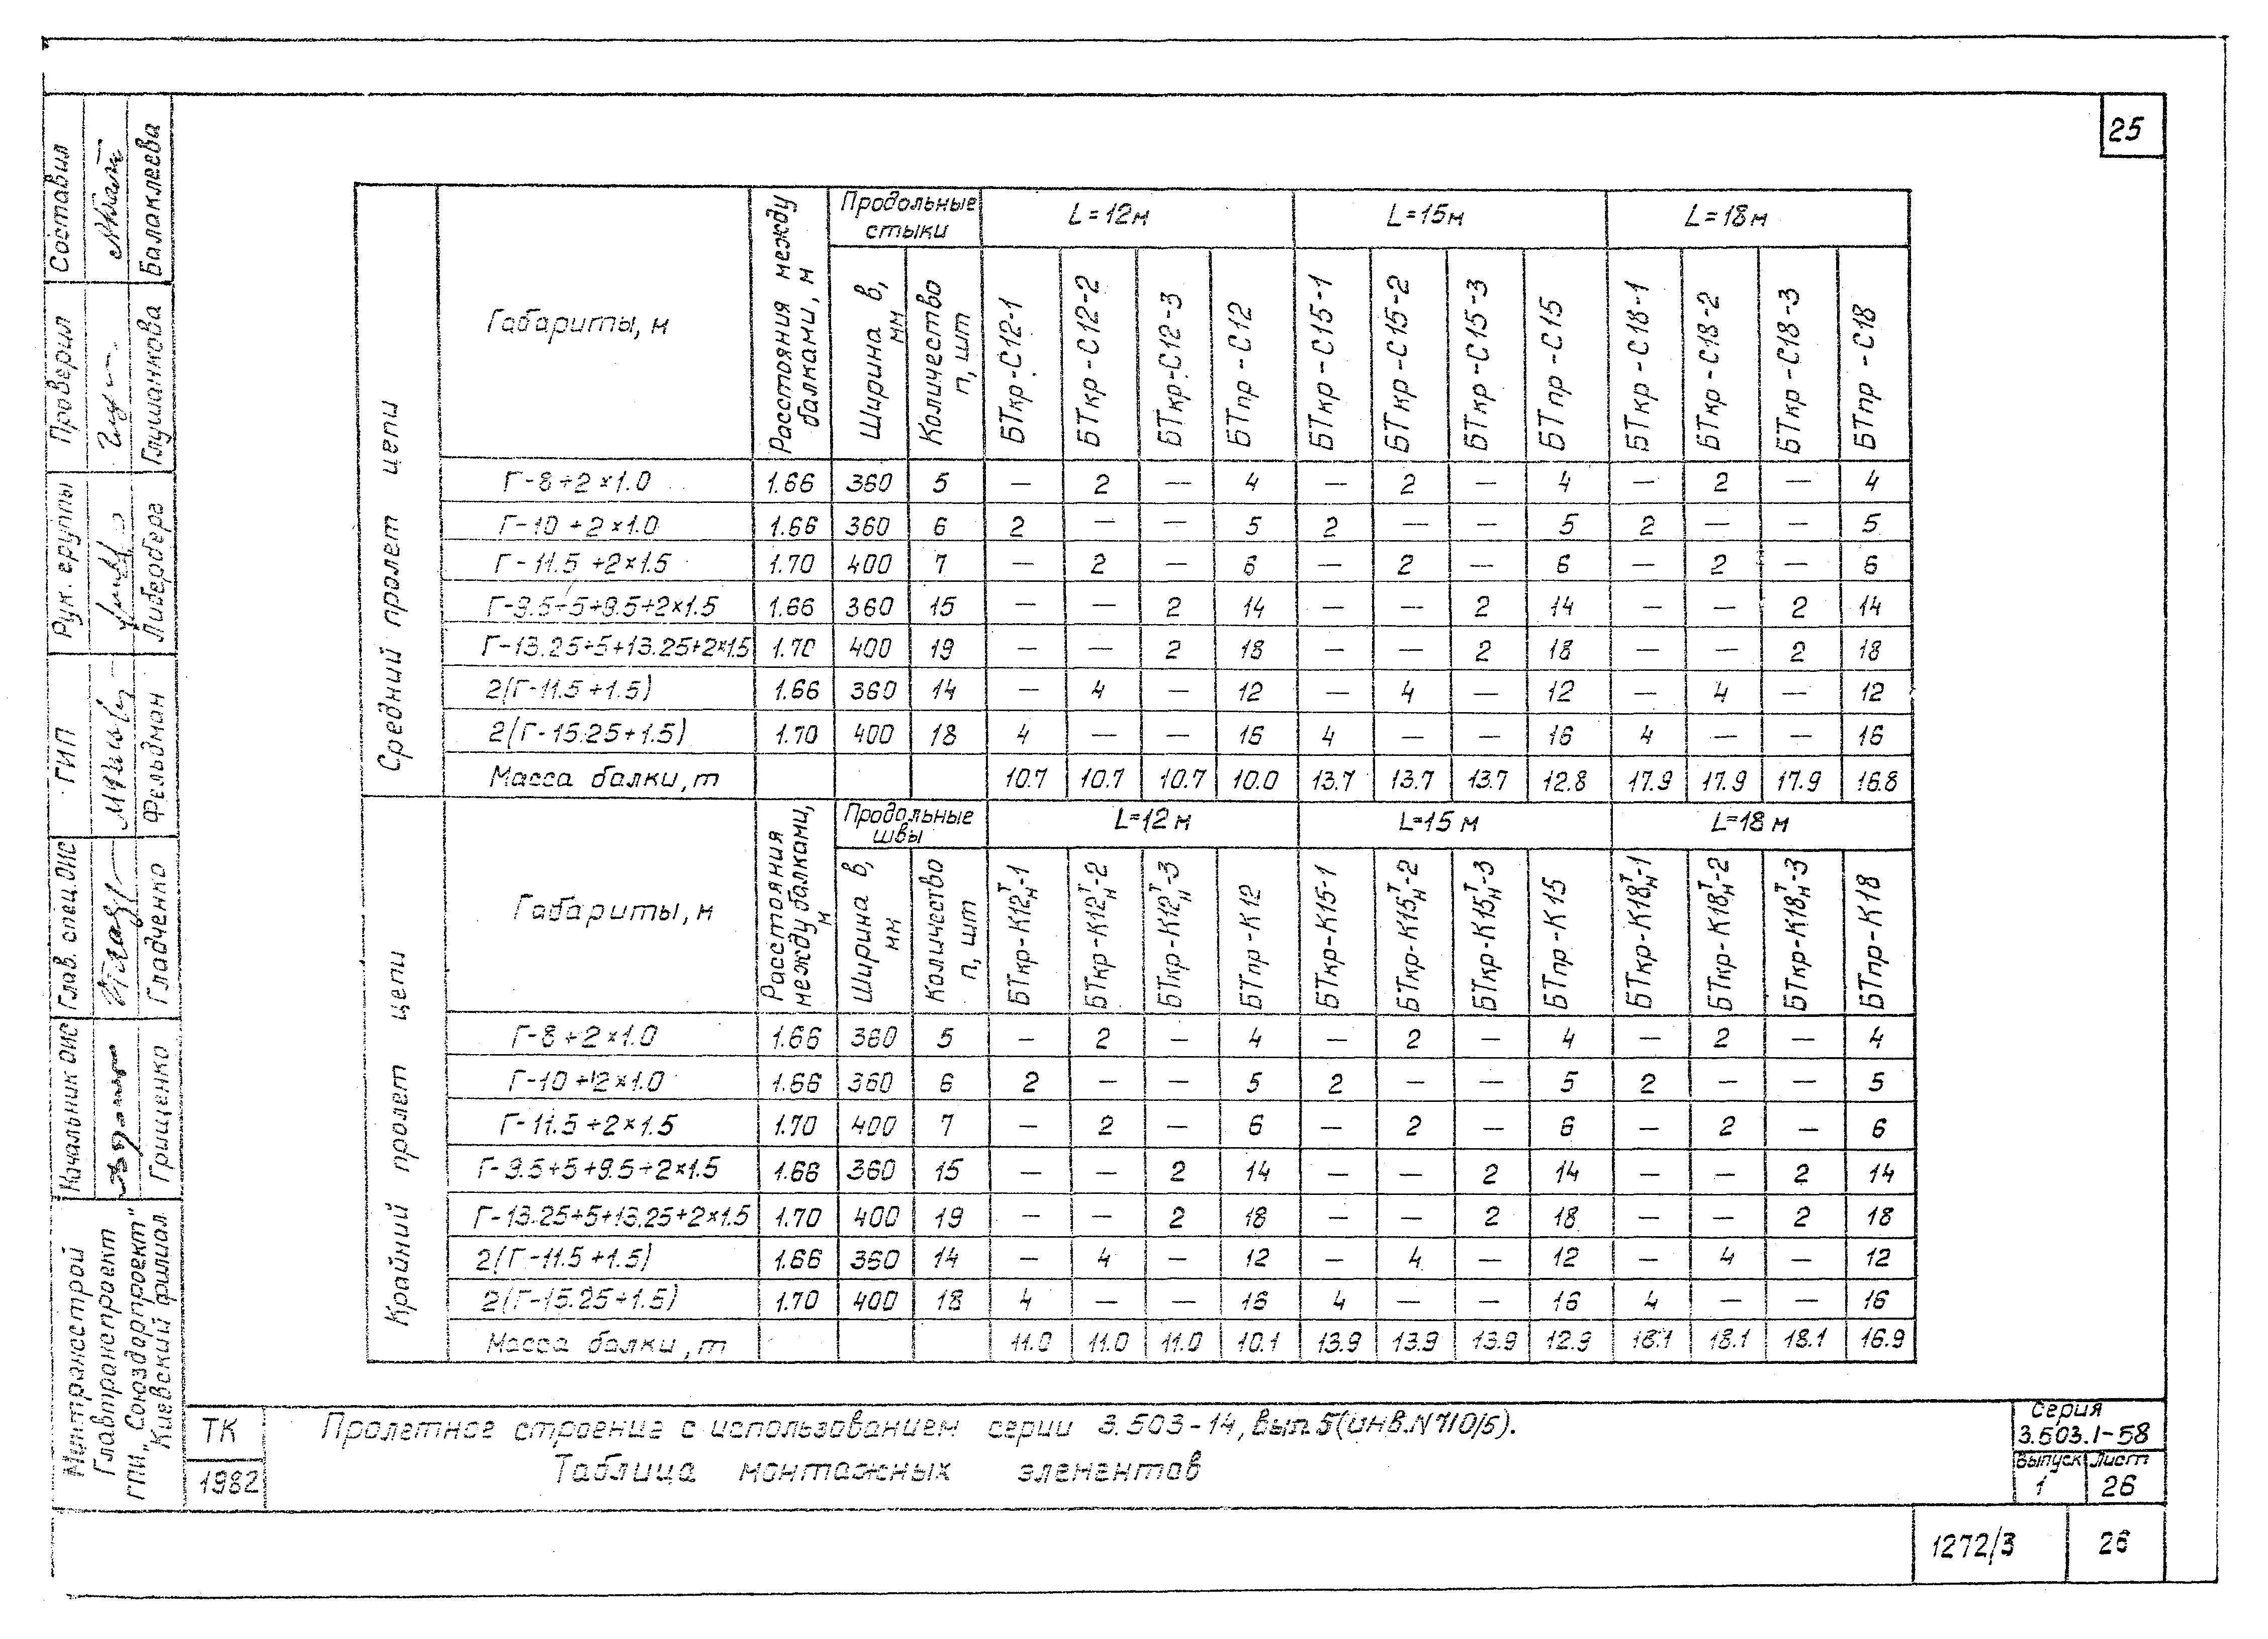 25
Средний пролет цепи
Габариты, м
Расстояния между балками, м
Продольные стыки
Ширина в, мм
Количество п, шт
L=12м
L=15м
L=18м
БТкр-С12-1
БТкр-С12-2
БТкр-С12-3
БТпр-С12
БТкр-С15-1
БТкр-С15-2
БТкр-С15-3
БТпр-С15
БТкр-С18-1
БТкр-С18-2
БТкр-С18-3
БТпр-С18
Г-8+2×1.0 1.66 360 5 — 2 — 4 — 2 — 4 — 2 — 4
Г-10+2×1.0 1.66 360 6 2 — — 5 2 — — 5 2 — — 5
Г-11.5+2×1.5 1.70 400 7 — 2 — 6 — 2 — 6 — 2 — 6
Г-9.5+5+9.5+2×1.5 1.66 360 15 — — 2 14 — — 2 14 — — 2 14
Г-13.25+5+13.25+2×1.5 1.70 400 19 — — 2 18 — — 2 18 — — 2 18
2(Г-11.5+1.5) 1.66 360 14 — 4 — 12 — 4 — 12 — 4 — 12
2(Г-15.25+1.5) 1.70 400 18 4 — — 16 4 — — 16 4 — — 16
Масса балки, т 10.7 10.7 10.7 10.0 13.7 13.7 13.7 12.8 17.9 17.9 17.9 16.8
Крайний пролет цепи
Габариты, м
Расстояния между балками, м
Продольные швы
Ширина в, мм
Количество п, шт
L=12м
L=15м
L=18м
БТкр-К12ᵀн-1
БТкр-К12ᵀн-2
БТкр-К12ᵀн-3
БТпр-К12
БТкр-К15-1
БТкр-К15ᵀн-2
БТкр-К15ᵀн-3
БТпр-К15
БТкр-К18ᵀн-1
БТкр-К18ᵀн-2
БТкр-К18ᵀн-3
БТпр-К18
Г-8+2×1.0 1.66 360 5 — 2 — 4 — 2 — 4 — 2 — 4
Г-10+2×1.0 1.66 360 6 2 — — 5 2 — — 5 2 — — 5
Г-11.5+2×1.5 1.70 400 7 — 2 — 6 — 2 — 6 — 2 — 6
Г-9.5+5+9.5+2×1.5 1.66 360 15 — — 2 14 — — 2 14 — — 2 14
Г-13.25+5+13.25+2×1.5 1.70 400 19 — — 2 18 — — 2 18 — — 2 18
2(Г-11.5+1.5) 1.66 360 14 — 4 — 12 — 4 — 12 — 4 — 12
2(Г-15.25+1.5) 1.70 400 18 4 — — 16 4 — — 16 4 — — 16
Масса балки, т 11.0 11.0 11.0 10.1 13.9 13.9 13.9 12.9 18.1 18.1 18.1 16.9
Составил Балаклеева
Проверил Глушанкова
Рук. группы Либерберг
ГИП Фельдман
Глав. спец. ОИС Гладченко
Начальник ОИС Грищенко
Минтрансстрой
Главтранспроект
ГПИ "Союздорпроект"
Киевский филиал
ТК
1982
Пролетное строение с использованием серии 3.503-14, вып. 5 (инв.N710/5).
Таблица монтажных элементов
Серия
3.503.1-58
Выпуск Лист
1 26
1272/3 26